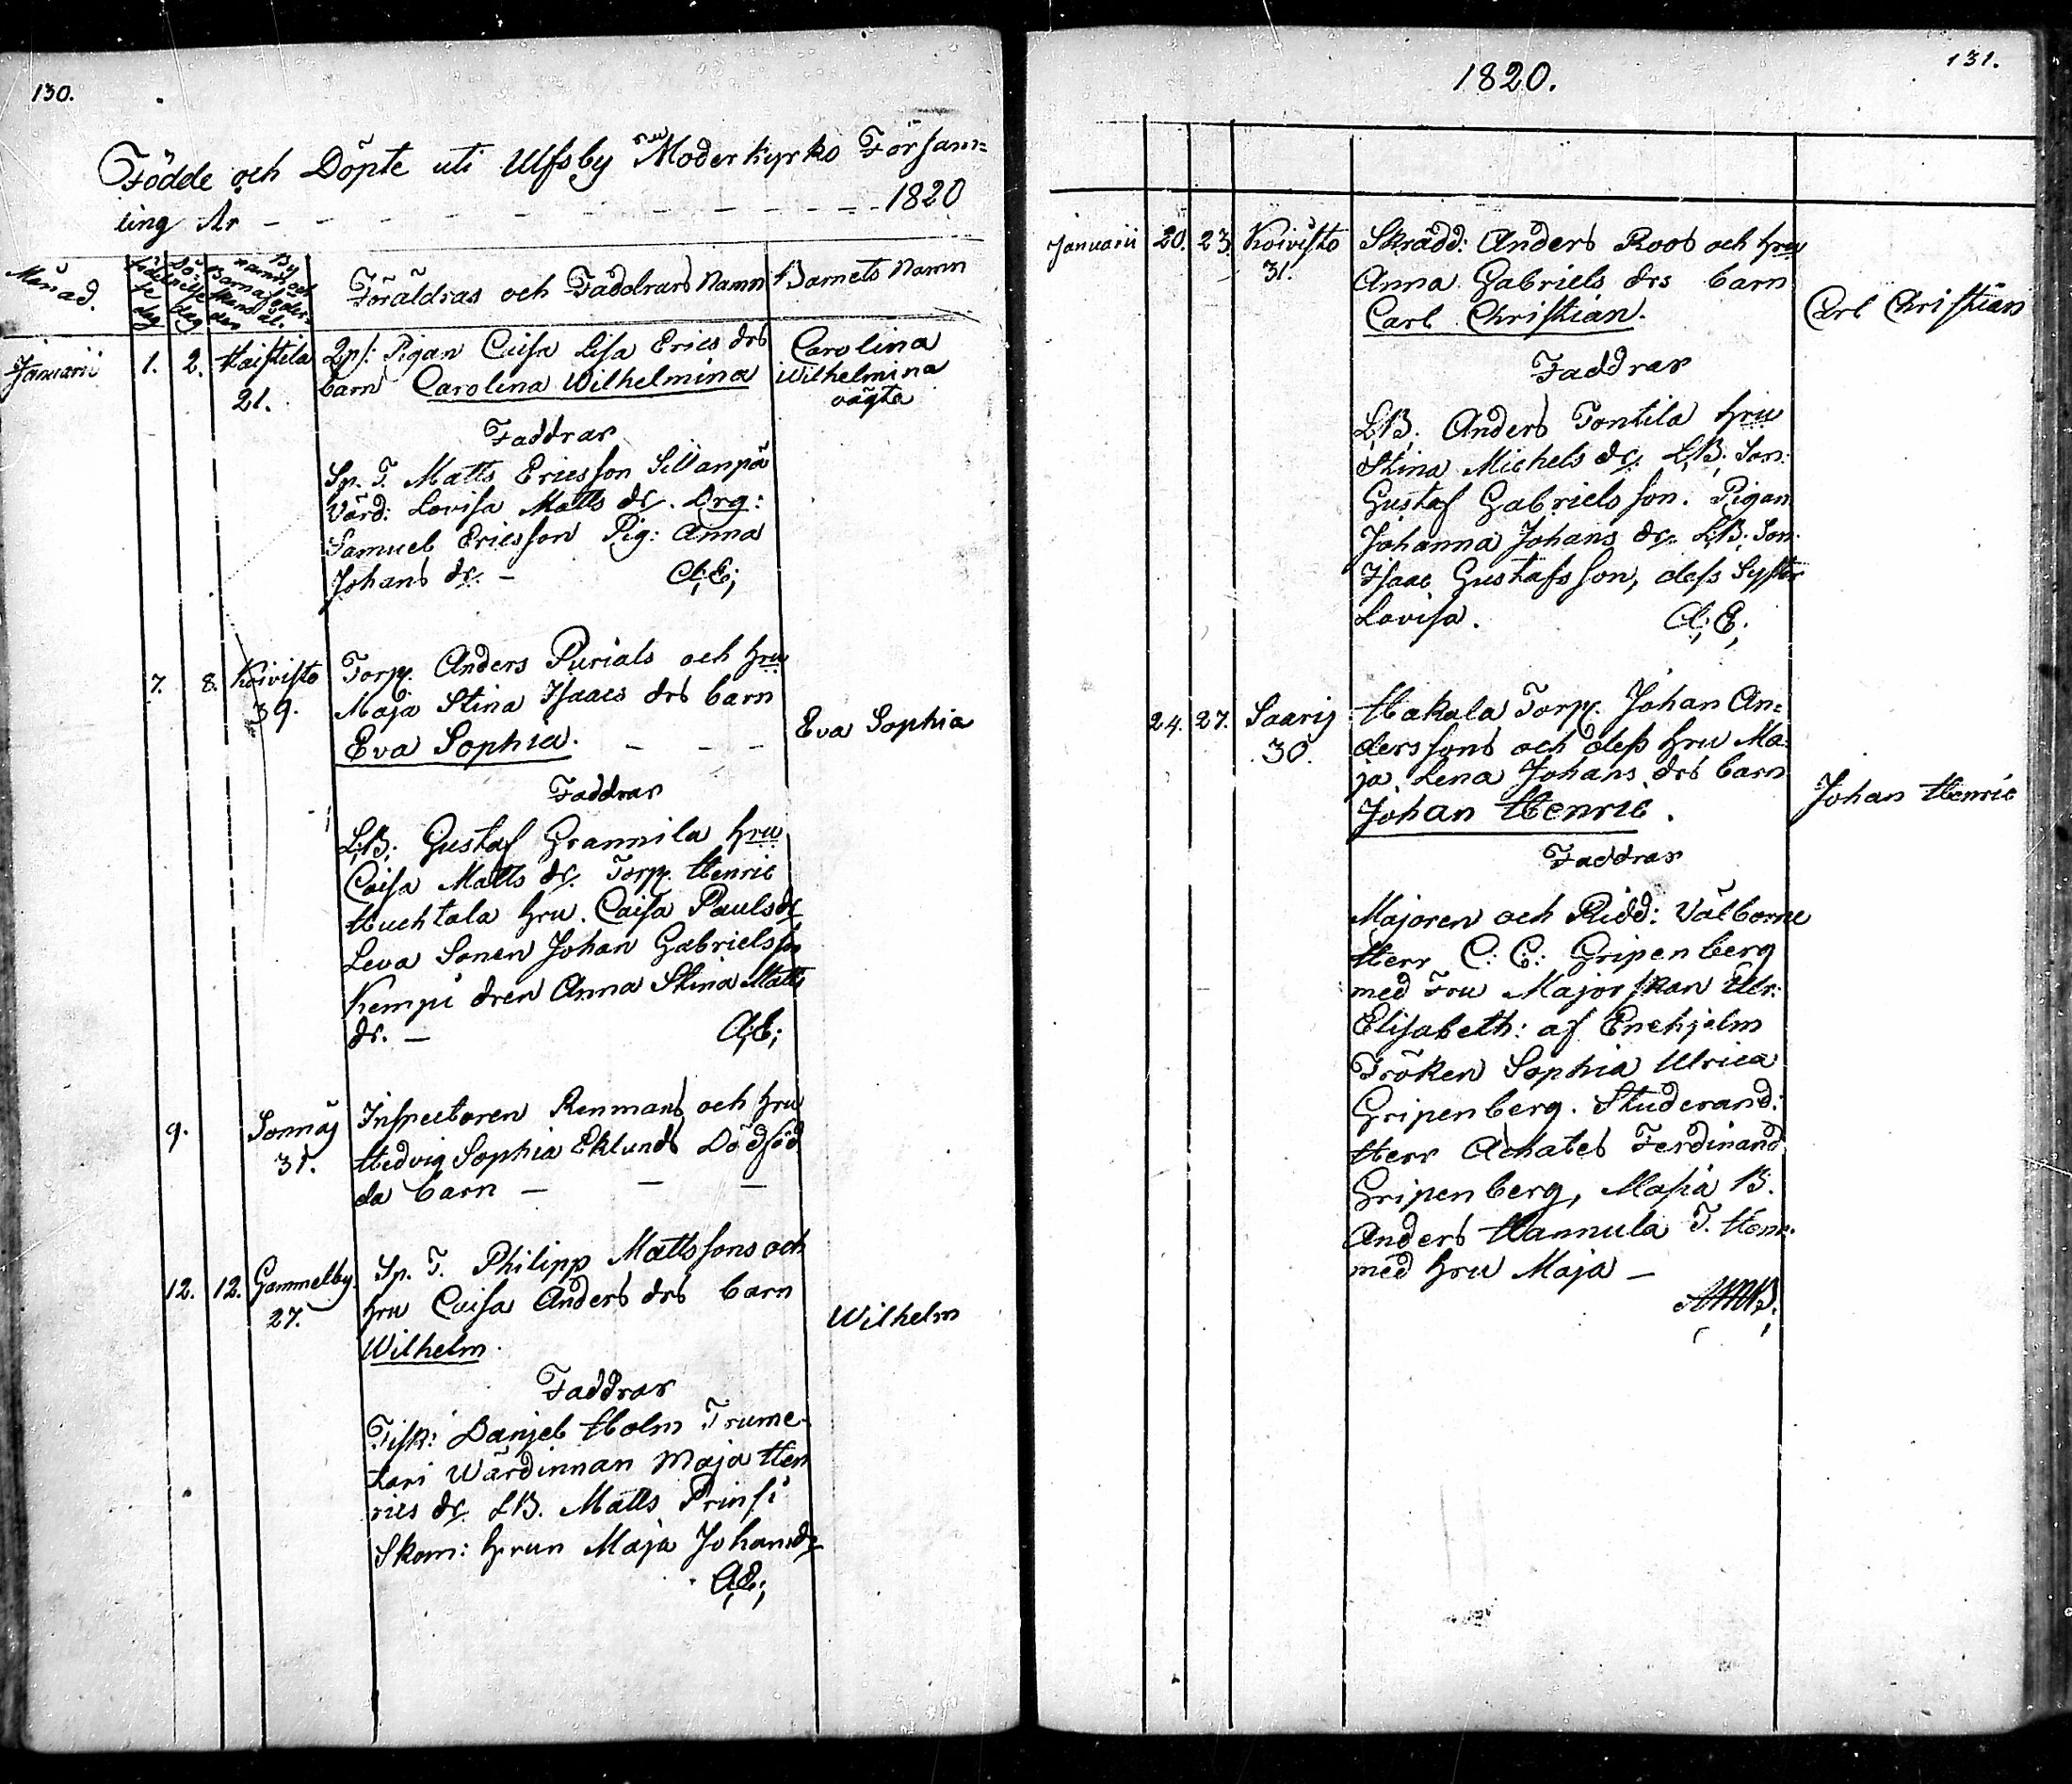 130.
Födde och Döpte uti Ulfsby Moderkyrko Försam=
ling År - - - - - - - - - - 1820
Månad.
Födelse dag
Döpelse dag
By namn, och Barnaföderskans ålder
Föräldras och Faddrars Namn
Barnets Namn
Januarii 1. 2. Haistila Lps: Pigan Caisa Lisa Erics drs Carolina
21. barn Carolina Wilhelmina Wilhelmina
oägta
Faddrar
Sp. T. Matts Ericsson Sillanpä
Värd: Lovisa Matts dr. Drg:
Samuel Ericsson Pig: Anna
Johans dr. - A;E;
7. 8. Koivisto Torp. Anders Purials och hru
39. Maja Stina Isaacs drs barn
Eva Sophia. - - - Eva Sophia
Faddrar
L;B; Gustaf Grannila hru
Caisa Matts dr. Torp. Henric
Huchtala hru. Caisa Paulsdr
Leva Sonen Johan Gabrielsson
Kempi dren Anna Stina Matts
dr. - A;E;
9. Sonnäs Inspectoren Renmans och hru
31. Hedvig Sophia Eklunds Dödföd
da barn - - -
12. 12. Gammelby. Sp. T. Philipp Mattssons och
27. hru Caisa Anders drs barn
Wilhelm. Wilhelm
Faddrar
Fisk: Danjel Holm Trume-
tari Wärdinnan Maja Hen
rics dr. LB. Matts Prinsi
Skom: hrun Maja Johansdr
A;E;
131.
1820.
Januarii 20. 23. Koivisto Skrädd: Anders Roos och hru
31. Anna Gabriels drs barn
Carl Christian. Carl Christian
Faddrar
L;B; Anders Tontila hru
Stina Michels dr. L;B; Son:
Gustaf Gabriels son. Pigan
Johanna Johans dr. L;B; Son:
Isaac Gustafs son, dess Syster
Lovisa. A;E;
24. 27. Saarij Hakala Torp. Johan An=
30. derssons och dess hru Ma=
ja Lena Johans drs barn
Johan Henric. Johan Henric
Faddrar
Majoren och Ridd: Välborne
Herr C: C: Gripenberg
med Fru Majorskan Ulr:
Elisabeth: af Enehjelm
Fröken Sophia Ulrica
Gripenberg. Studerand:
Herr Achates Ferdinand
Gripenberg, B.
Anders Hannula T. Henr.
med hru Maja -